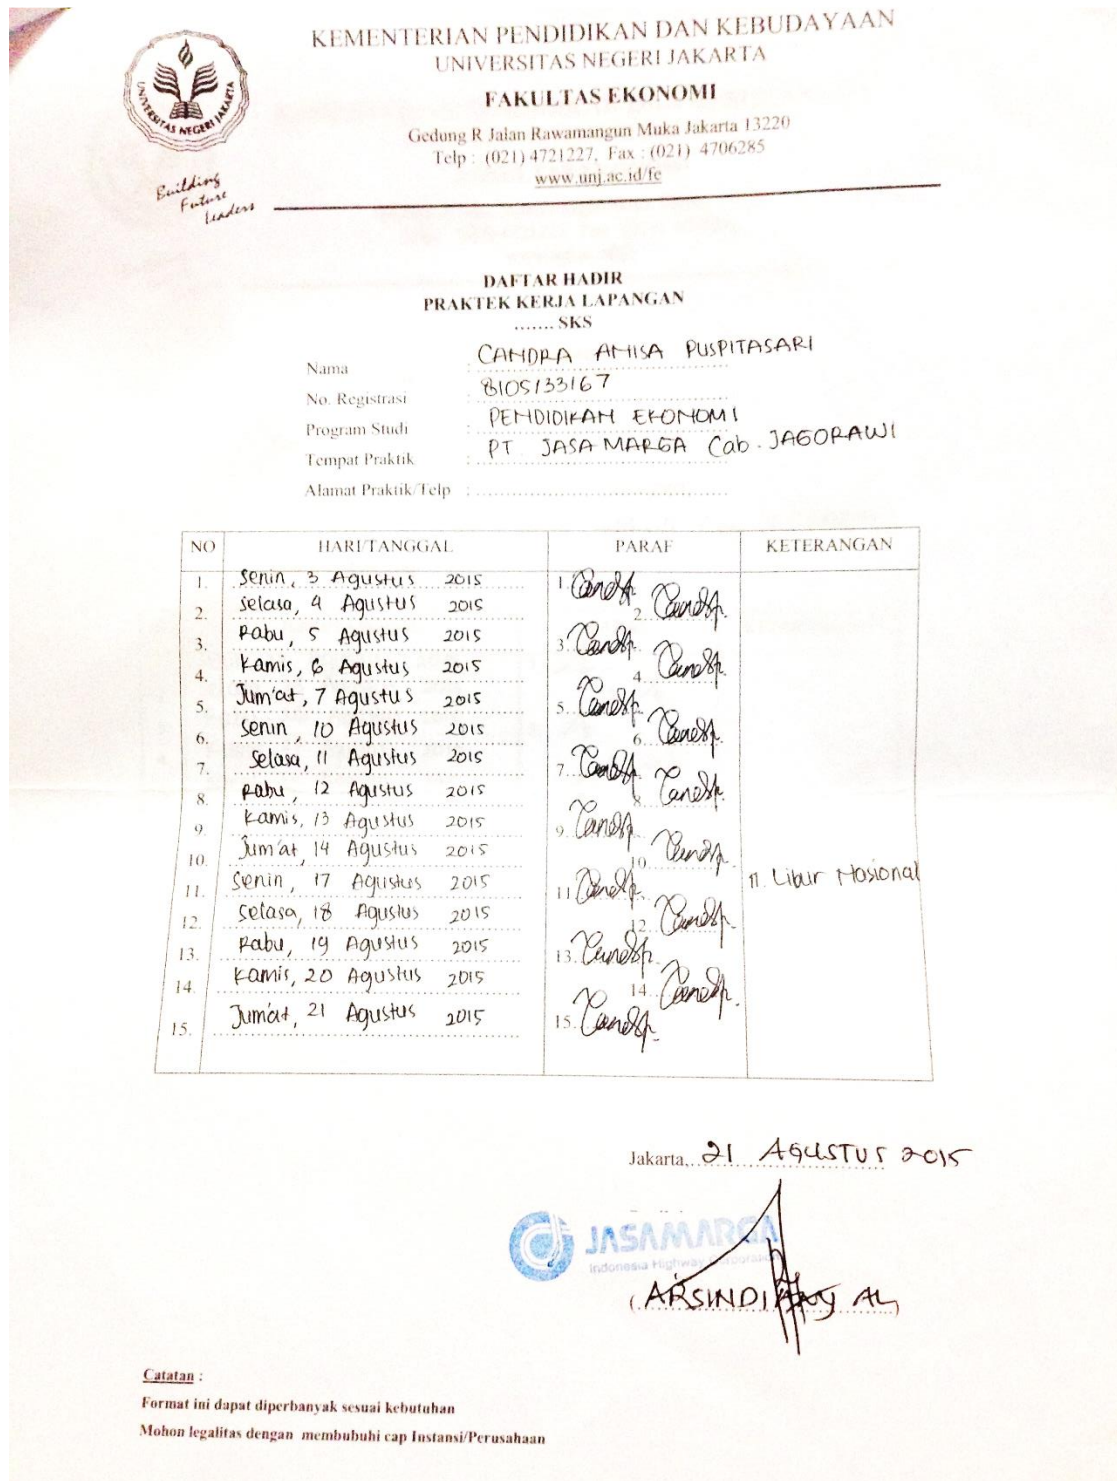 KEMENTERIAN PENDIDIKAN DAN KEBUDAYAAN
UNIVERSITAS NEGERI JAKARTA
FAKULTAS EKONOMI
Gedung R Jalan Rawamangun Muka Jakarta 13220
Telp : (021) 4721227, Fax : (021) 4706285
www.unj.ac.id/fe
UNIVERSITAS NEGERI JAKARTA
Building
Future
Leaders
DAFTAR HADIR
PRAKTEK KERJA LAPANGAN
....... SKS
Nama : CANDRA ANISA PUSPITASARI
No. Registrasi : 8105133167
Program Studi : PENDIDIKAN EKONOMI
Tempat Praktik : PT JASA MARGA Cab. JAGORAWI
Alamat Praktik/Telp :
NO HARI/TANGGAL PARAF KETERANGAN
1. Senin, 3 Agustus 2015 1.
2. Selasa, 4 Agustus 2015 2.
3. Rabu, 5 Agustus 2015 3.
4. Kamis, 6 Agustus 2015 4.
5. Jum'at, 7 Agustus 2015 5.
6. Senin, 10 Agustus 2015 6.
7. Selasa, 11 Agustus 2015 7.
8. Rabu, 12 Agustus 2015 8.
9. Kamis, 13 Agustus 2015 9.
10. Jum'at, 14 Agustus 2015 10.
11. Senin, 17 Agustus 2015 11. 11. Libur Nasional
12. Selasa, 18 Agustus 2015 12.
13. Rabu, 19 Agustus 2015 13.
14. Kamis, 20 Agustus 2015 14.
15. Jum'at, 21 Agustus 2015 15.
Jakarta, 21 AGUSTUS 2015
JASAMARGA
Indonesia Highway Corporation
(ARSINDI AL)
Catatan :
Format ini dapat diperbanyak sesuai kebutuhan
Mohon legalitas dengan membubuhi cap Instansi/Perusahaan